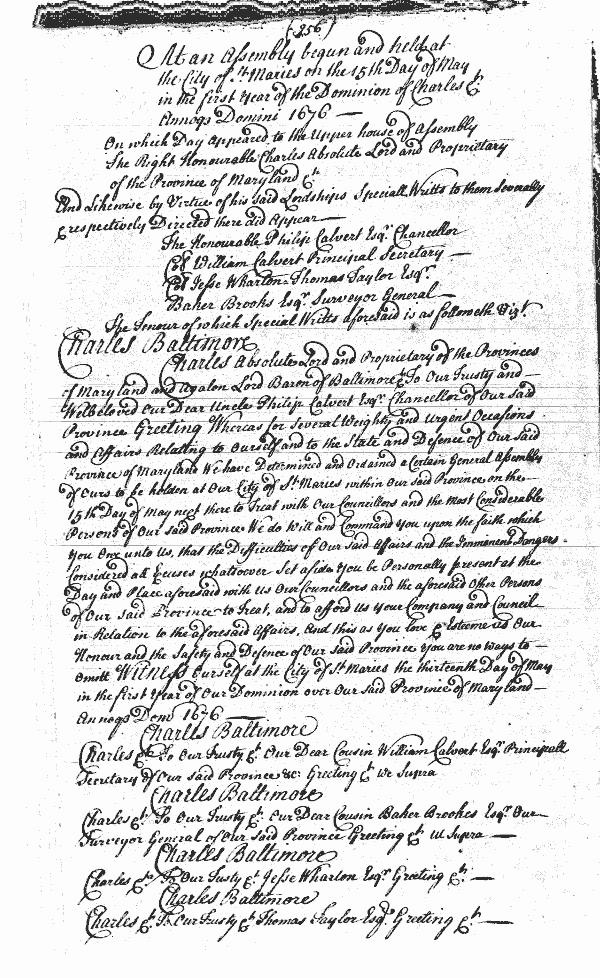 (256)
At an Assembly begun and held at
the City of St Maries on the 15th Day of May
in the first Year of the Dominion of Charles &c
Annoqs Domini 1676 —
On which Day appeared to the Upper house of Assembly
The Right Honourable Charles Absolute Lord and Proprietary
of the Province of Maryland &c
And Likewise by Virtue of his Said Lordships Speciall Writts to them Severally
& respectively Directed there did Appear —
The Honourable Philip Calvert Esqr. Chancellor
Coll William Calvert Principal Secretary —
Coll Jesse Wharton Thomas Taylor Esqr.
Baker Brooks Esqr. Surveyor General —
The Tenour of which Special Writts aforesaid is as followeth Vizt.
Charles Baltimore
Charles Absolute Lord and Proprietary of the Provinces
of Maryland and Avalon Lord Baron of Baltimore &c To Our Trusty and —
Welbeloved Our Dear Uncle Philip Calvert Esqr. Chancellor of Our Said
Province Greeting Whereas for Several Weighty and Urgent Occasions
and Affairs Relating to Ourself and to the State and Defence of Our Said
Province of Maryland We have Determined and Ordained a Certain General Assembly
of Ours to be holden at Our City of St Maries within Our Said Province on the —
15th Day of May next there to Treat with Our Councillors and the most Considerable
Persons of Our said Province We do Will and Command You upon the faith which
You Owe unto Us, that the Difficulties of Our Said Affairs and the Immanent Dangers
Considered all Excuses whatsoever Set aside You be Personally present at the
Day and Place aforesaid with us Our Councillors and the aforesaid Other Persons
of Our Said Province to Treat, and to afford Us Your Company and Council
in Relation to the aforesaid Affairs, And this as You love & Esteeme us Our
Honour and the Safety and Defence of Our said Province You are no ways to —
Omitt Witness Ourself at the City of St Maries the thirteenth Day of May
in the first Year of Our Dominion over Our Said Province of Maryland —
Annoqs Dom 1676 —
Charles Baltimore
Charles &c To Our Trusty &c Our Dear Cousin William Calvert Esqr. Principall
Secretary of Our said Province &c: Greeting &c ut Supra
Charles Baltimore
Charles &c. To Our Trusty &c: Our Dear Cousin Baker Brookes Esqr. Our
Surveyor General of Our Said Province Greeting &c ut Supra —
Charles Baltimore
Charles &c To Our Trusty &c Jesse Wharton Esqr. Greeting &c. —
Charles Baltimore
Charles &c. To Our Trusty &c Thomas Taylor Esqr. Greeting &c —